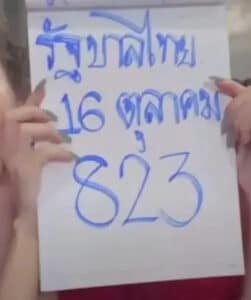 รัฐบาลไทย
16 ตุลาคม
823